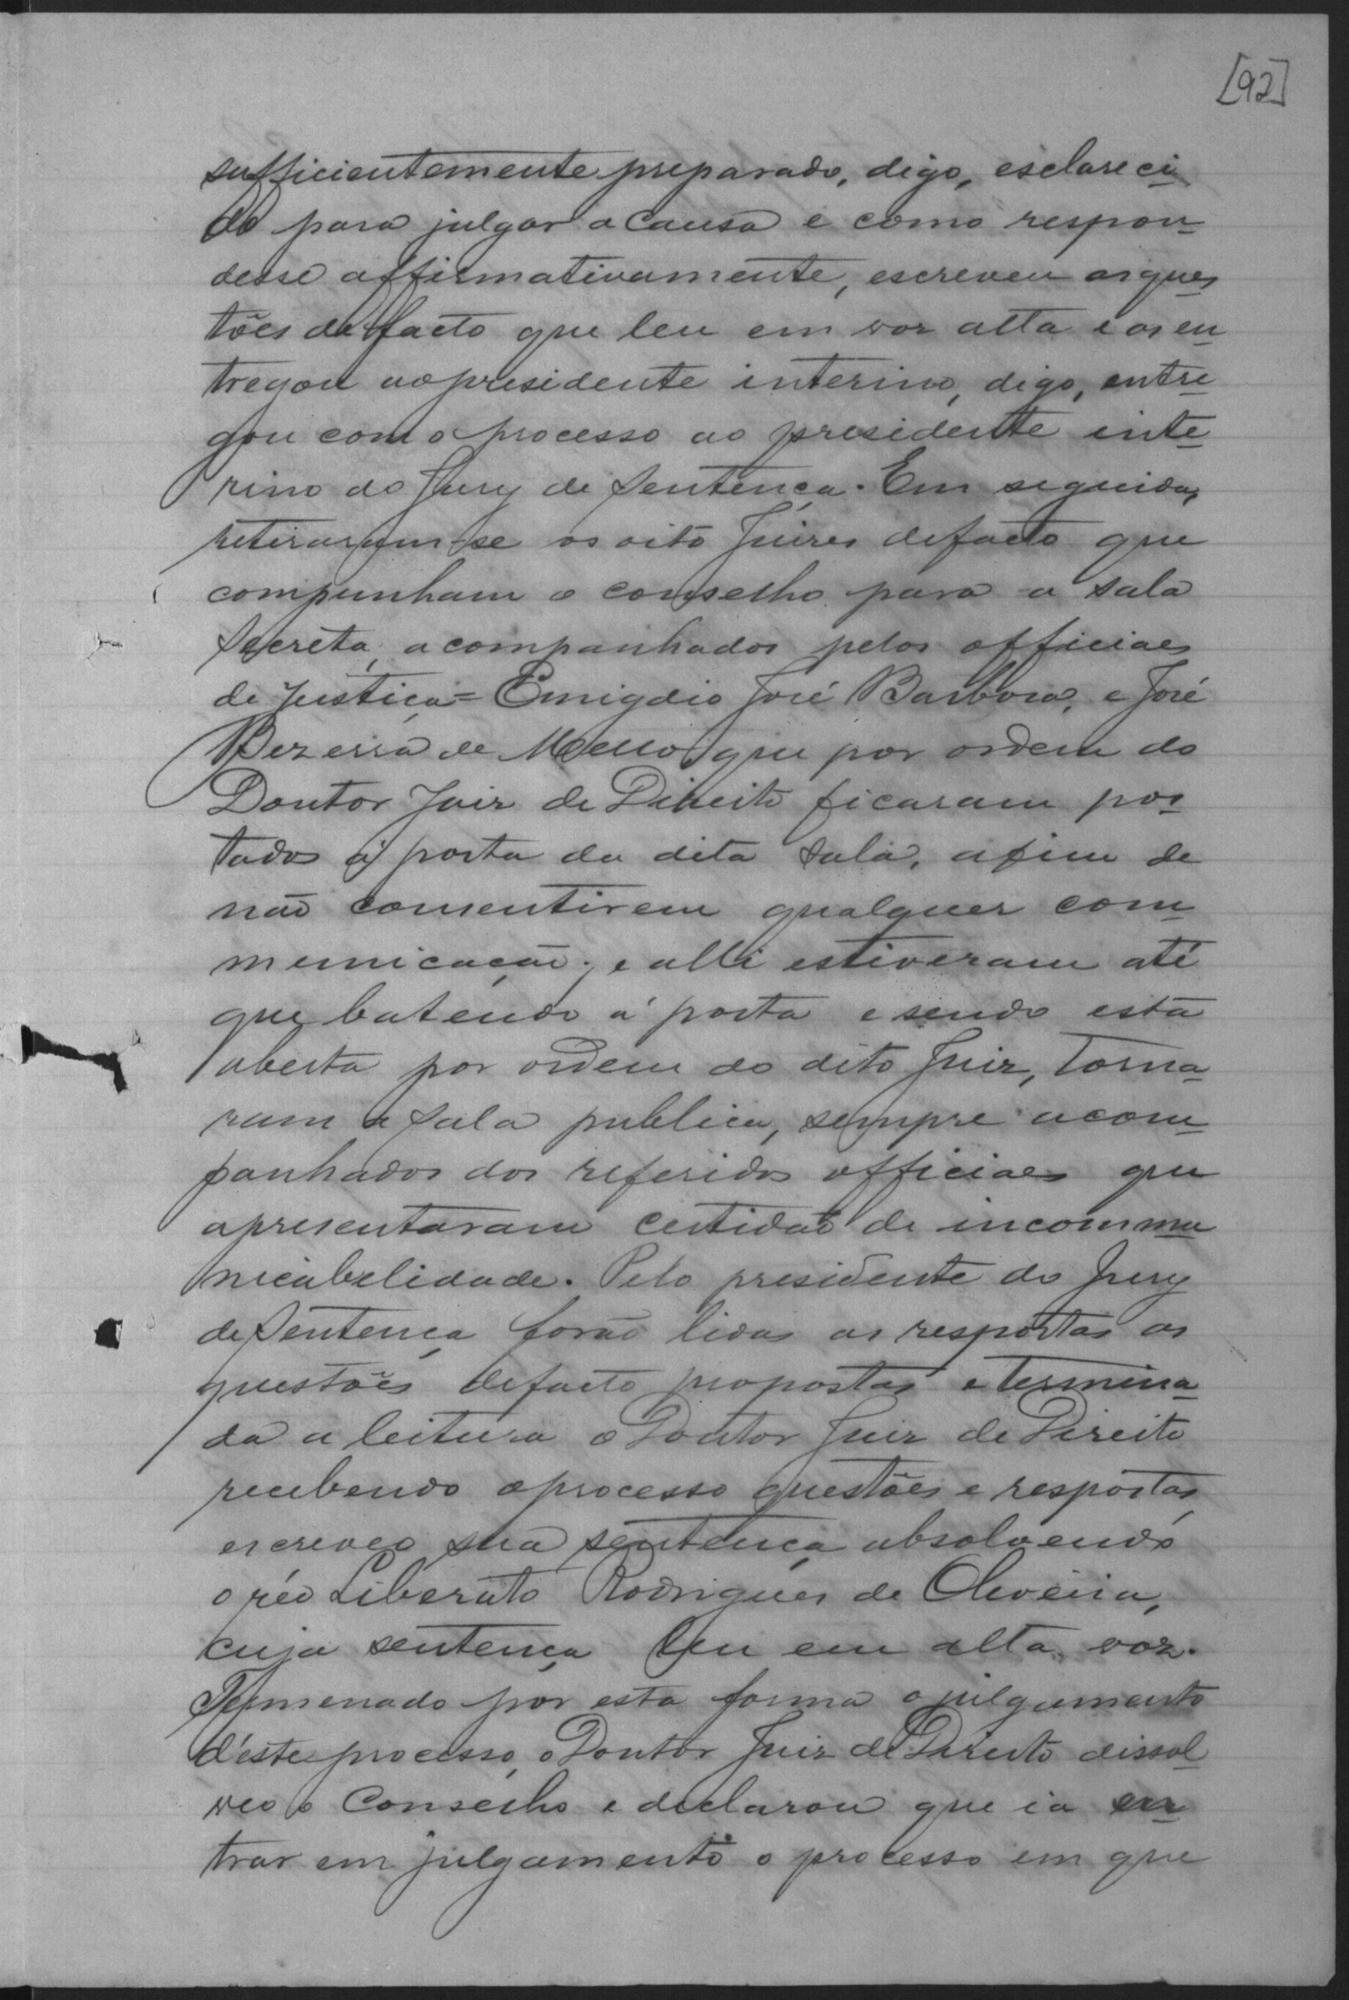 [92]
sufficientemente preparado, digo, esclareci
do para julgar a causa e como respon-
desse affirmativamente, escreveu as ques
tões de facto que leu em voz alta e as en
tregou ao presidente interino, digo, entre-
gou com o processo ao presidente inte-
rino do Jury de Sentença. Em seguida,
retiraram-se os oito Juizes de facto que
compunham o conselho para a sala
secreta, acompanhados pelos officiaes
de justiça = Emigdio José Barbosa, e José
Bezerra de Mello, que por ordem do
Doutor Juiz de Direito ficaram pos-
tados á porta da dita sala, afim de
não consentirem qualquer com-
municação; e alli estiveram até
que batendo á porta e sendo esta
aberta por ordem do dito Juiz, torna-
ram a sala publica, sempre acom-
panhados dos referidos officiaes que
apresentaram certidão de incommu-
nicabelidade. Pelo presidente do Jury
de Sentença forão lidas as respostas as
questões de facto propostas e termina-
da a leitura o Doutor Juiz de Direito
recebendo o processo questões e respostas,
escreveo sua sentença absolvendo
o réo Liberato Rodrigues de Oliveira,
cuja sentença leu em alta voz.
Termenado por esta forma o julgamento
d'este processo, o Doutor Juiz de Direito dissol
veo o Conselho e declarou que ia en-
trar em julgamento o processo em que